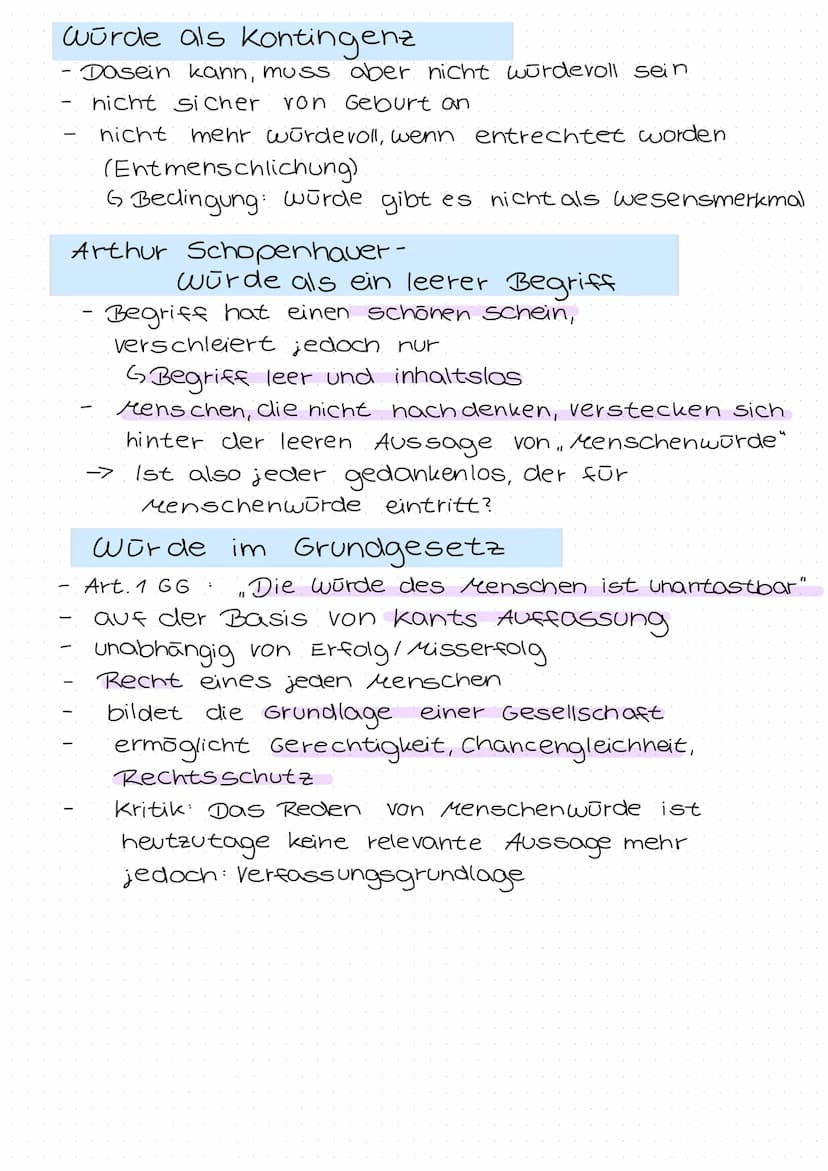 Würde als Kontingenz
- Dasein kann, muss aber nicht würdevoll sein
- nicht sicher von Geburt an
- nicht mehr würdevoll, wenn entrechtet worden
(Entmenschlichung)
↳ Bedingung: Würde gibt es nicht als Wesensmerkmal
Arthur Schopenhauer -
Würde als ein leerer Begriff
- Begriff hat einen schönen Schein,
verschleiert jedoch nur
↳ Begriff leer und inhaltslos
- Menschen, die nicht nachdenken, verstecken sich
hinter der leeren Aussage von „Menschenwürde“
→ Ist also jeder gedankenlos, der für
Menschenwürde eintritt?
Würde im Grundgesetz
- Art. 1 GG : „Die Würde des Menschen ist unantastbar“
- auf der Basis von Kants Auffassung
- unabhängig von Erfolg/Misserfolg
- Recht eines jeden Menschen
- bildet die Grundlage einer Gesellschaft
- ermöglicht Gerechtigkeit, Chancengleichheit,
Rechtsschutz
- Kritik: Das Reden von Menschenwürde ist
heutzutage keine relevante Aussage mehr
jedoch: Verfassungsgrundlage